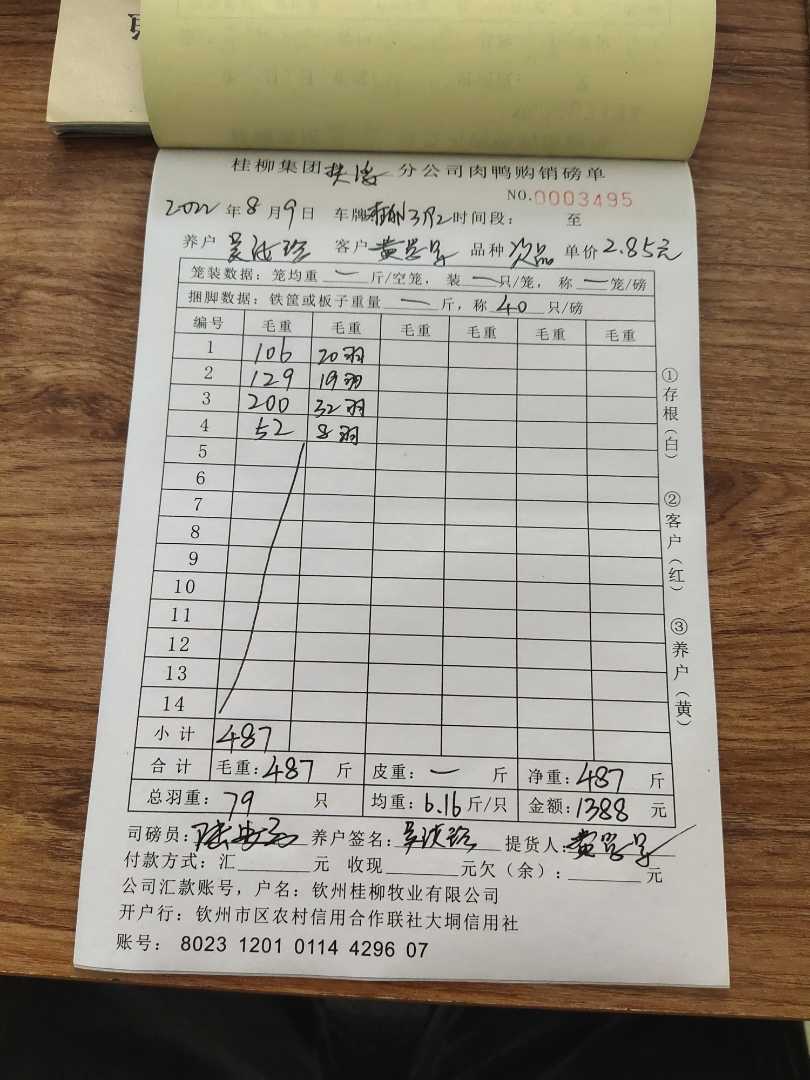 桂柳集团 分公司肉鸭购销磅单
NO.0003495
2022年8月9日 车牌 时间段: 至
养户 吴 客户 黄 品种 次品 单价 2.85元
笼装数据:笼均重 一 斤/空笼,装 一 只/笼,称 一 笼/磅
捆脚数据:铁筐或板子重量 一 斤,称 40 只/磅
编号 毛重 毛重 毛重 毛重 毛重 毛重
1 106 20羽
2 129 19羽
3 200 32羽
4 52 8羽
5
6
7
8
9
10
11
12
13
14
小计 487
合计 毛重:487 斤 皮重:一 斤 净重:487 斤
总羽重:79 只 均重:6.16斤/只 金额:1388 元
司磅员:陆 养户签名:吴 提货人:黄
付款方式:汇 元 收现 元欠(余): 元
公司汇款账号,户名:钦州桂柳牧业有限公司
开户行:钦州市区农村信用合作联社大垌信用社
账号: 8023 1201 0114 4296 07
①存根(白) ②客户(红) ③养户(黄)